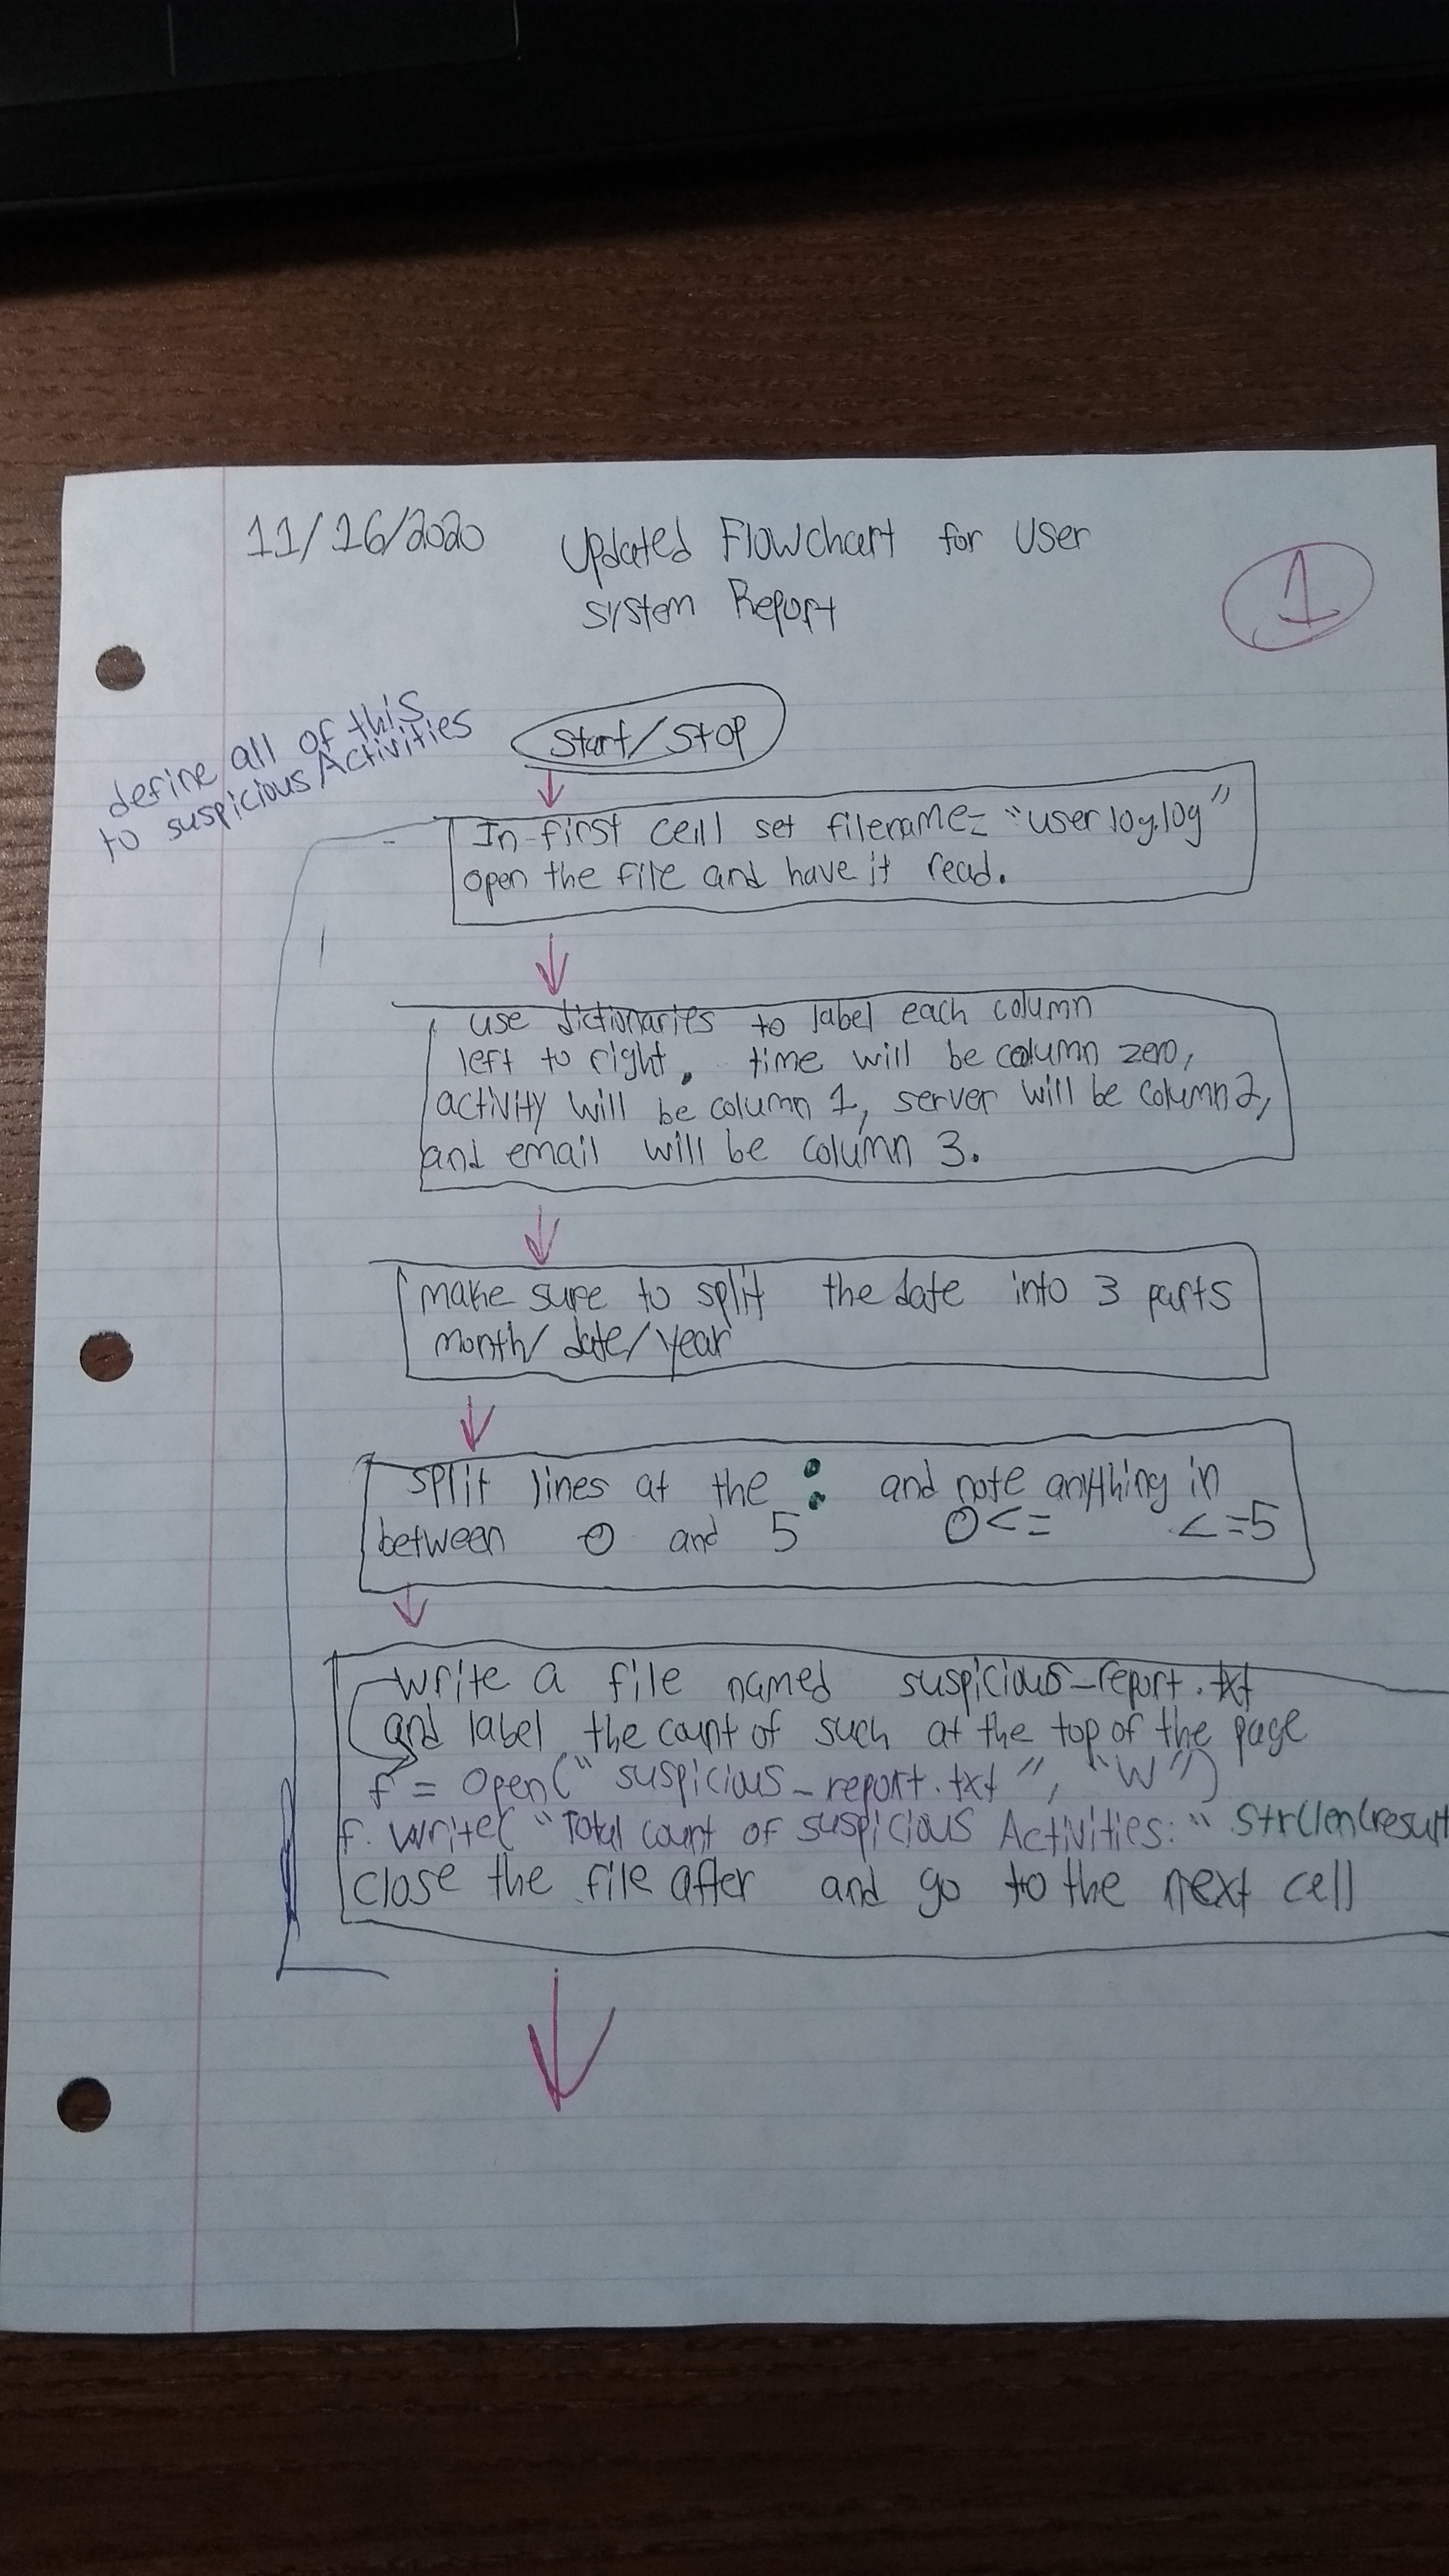 11/16/2020 Updated Flowchart for User
System Report
1
define all of this
to suspiciousActivities
Start/Stop
In first cell set filename= "userlog.log"
open the file and have it read.
use dictionaries to label each column
left to right. time will be column zero,
activity will be column 1, server will be column 2,
and email will be column 3.
make sure to split the date into 3 parts
month/date/year
split lines at the : and note anything in
between 0 and 5 0<= <=5
write a file named suspicious_report.txt
and label the count of such at the top of the page
f = open("suspicious_report.txt", "W")
f.write("Total count of suspicious Activities:" str(len(result
close the file after and go to the next cell